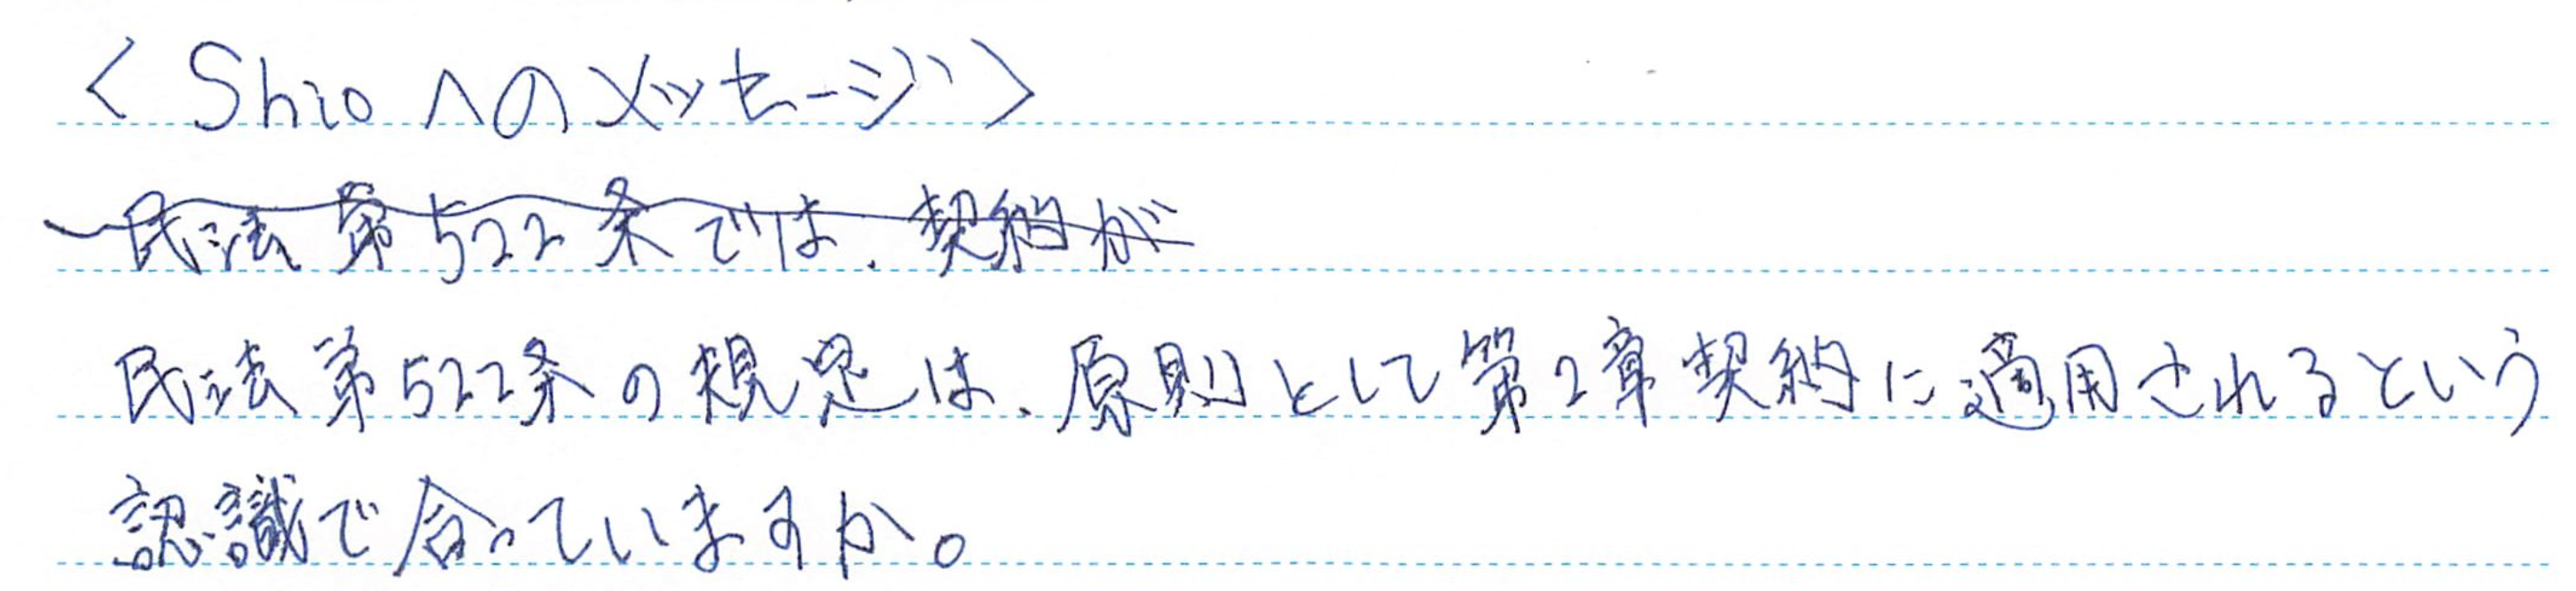 <Shioへのメッセージ>
民法第522条では、契約が
民法第522条の規定は、原則として第2章契約に適用されるという
認識で合っていますか。